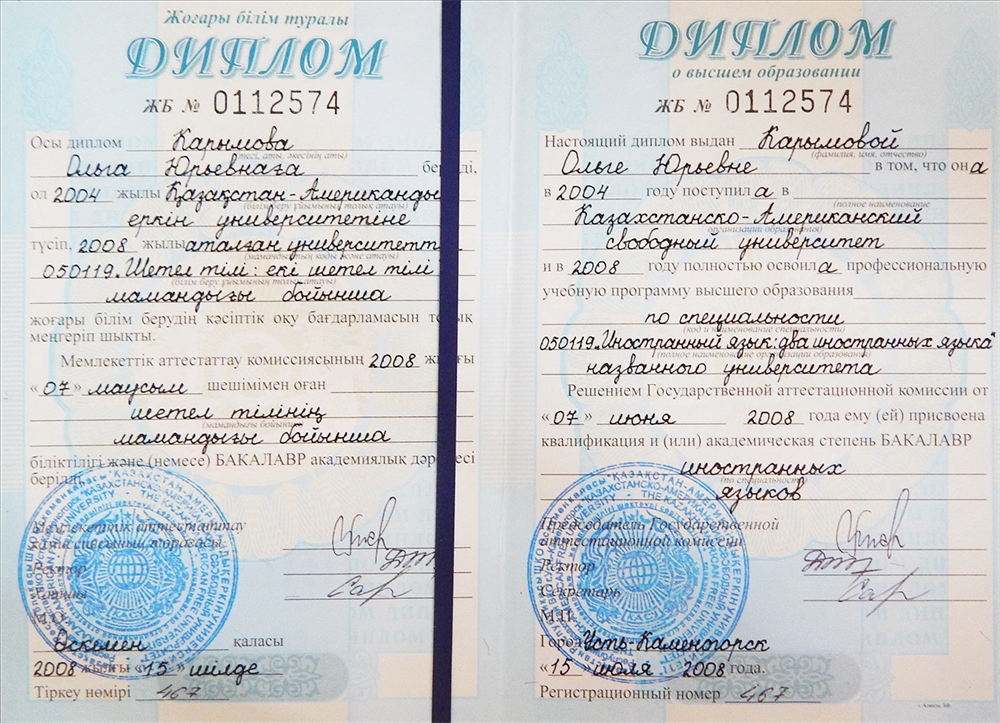 Жоғары білім туралы
ДИПЛОМ
ЖБ № 0112574
Осы диплом Карымова
(тегі, аты, әкесінің аты)
Ольга Юрьевнаға
ол 2004 жылы Қазақстан-Американдық
(білім беру ұйымының толық атауы)
еркін университетіне
түсіп, 2008 жылы аталған университетт
(мамандықтың коды және атауы)
050119. Шетел тілі: екі шетел тілі
(білім беру ұйымының толық атауы)
мамандығы бойынша
жоғары білім берудің кәсіптік оқу бағдарламасын толық
меңгеріп шықты.
Мемлекеттік аттестаттау комиссиясының 2008 жылғы
«07» маусым шешімімен оған
шетел тілінің
(мамандығы бойынша)
мамандығы бойынша
біліктілігі және (немесе) БАКАЛАВР академиялық дәрежесі
берілді.
Мемлекеттік аттестаттау
комиссиясының төрағасы
Ректор
Хатшы
М.О.
Өскемен қаласы
2008 жылғы «15» шілде
Тіркеу нөмірі 467
ДИПЛОМ
о высшем образовании
ЖБ № 0112574
Настоящий диплом выдан Карымовой
(фамилия, имя, отчество)
Ольге Юрьевне в том, что она
в 2004 году поступила в
(полное наименование
Казахстанско-Американский
организации образования)
свободный университет
и в 2008 году полностью освоила профессиональную
учебную программу высшего образования
по специальности
(код и наименование специальности)
050119. Иностранный язык: два иностранных языка"
(полное наименование организации образования)
названного университета
Решением Государственной аттестационной комиссии от
«07» июня 2008 года ему (ей) присвоена
квалификация и (или) академическая степень БАКАЛАВР
иностранных
(по специальности)
языков
Председатель Государственной
аттестационной комиссии
Ректор
Секретарь
М.П.
Город Усть-Каменогорск
«15» июля 2008 года.
Регистрационный номер 467